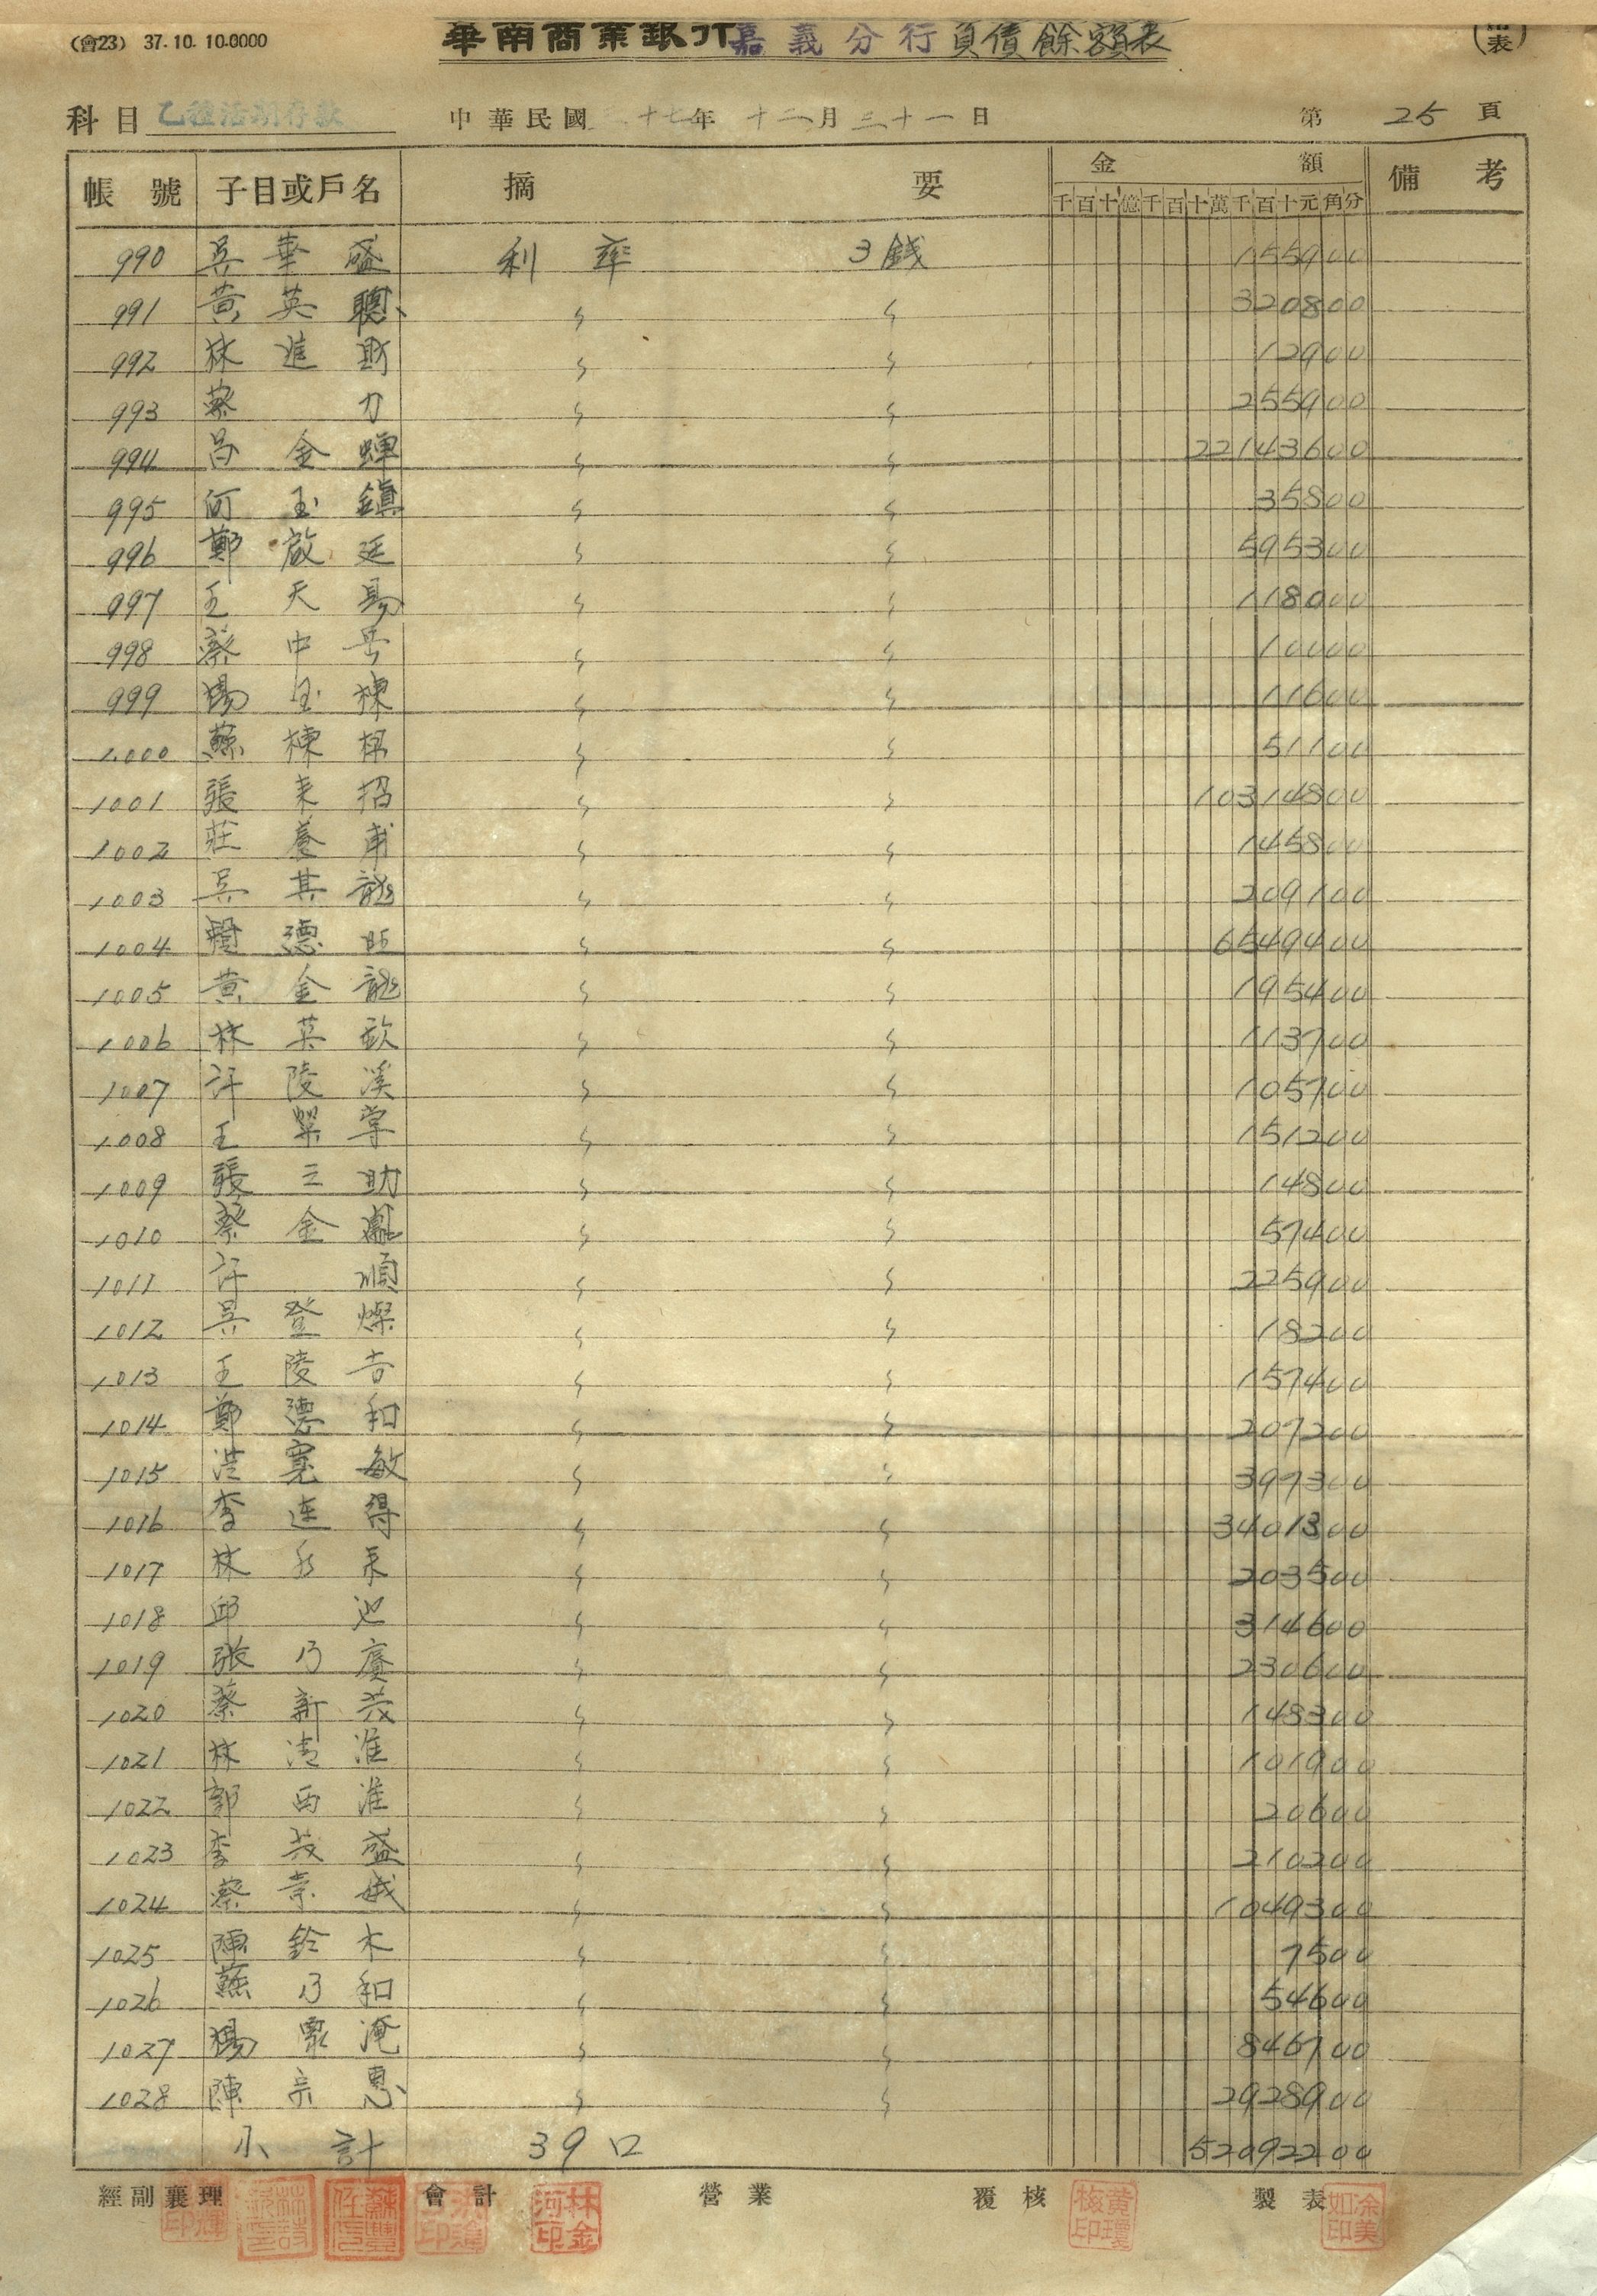 (會23) 37.10.10.0000
華南商業銀行嘉義分行負債餘額表
表
科目 乙種活期存款 中華民國三十七年十二月三十一日 第25頁
帳號 子目或戶名 摘要 金額 備考
千百十億千百十萬千百十元角分
990 吳華盛 利率 3錢 155900
991 黃英聰 〃 〃 320800
992 林進財 〃 〃 12900
993 蔡力 〃 〃 255900
994 呂金蟬 〃 〃 22143600
995 何玉鎮 〃 〃 35800
996 鄭啟廷 〃 〃 595300
997 王天易 〃 〃 118000
998 蔡中 〃 〃 10000
999 楊玉棟 〃 〃 11600
1.000 蘇棟 〃 〃 51100
1001 張來招 〃 〃 10314800
1002 莊養甫 〃 〃 145800
1003 吳其龍 〃 〃 209100
1004 賴德旺 〃 〃 6549400
1005 黃金龍 〃 〃 195400
1006 林英欽 〃 〃 113700
1007 許陵溪 〃 〃 105700
1008 王掌 〃 〃 151200
1009 張三助 〃 〃 14800
1010 蔡金鳳 〃 〃 57400
1011 許順 〃 〃 225900
1012 吳登燦 〃 〃 18200
1013 王陵吉 〃 〃 157400
1014 鄭德和 〃 〃 207200
1015 洪寬敏 〃 〃 397300
1016 李連得 〃 〃 3401300
1017 林永 〃 〃 203500
1018 邱池 〃 〃 314600
1019 張乃賡 〃 〃 230600
1020 蔡新茂 〃 〃 148300
1021 林清淮 〃 〃 101900
1022 郭西淮 〃 〃 20600
1023 李茂盛 〃 〃 210200
1024 蔡素娥 〃 〃 1049300
1025 陳鈴木 〃 〃 7500
1026 蘇乃和 〃 〃 54600
1027 楊眾淹 〃 〃 846700
1028 陳宗惠 〃 〃 2928900
小計 39口 52092200
經副襄理 會計 營業 覆核 製表
林金河印
黃瓊梅印
涂美如印